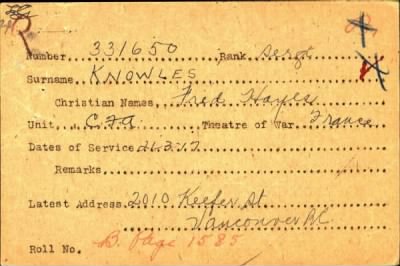 Number 331650 Rank Sergt
Surname KNOWLES
Christian Names, Fred Hayes
Unit, C.F.A. Theatre of War. France
Dates of Service 21.3.17
Remarks
Latest Address 2010 Keefer St
Vancouver BC
Roll No. B. Page 1585